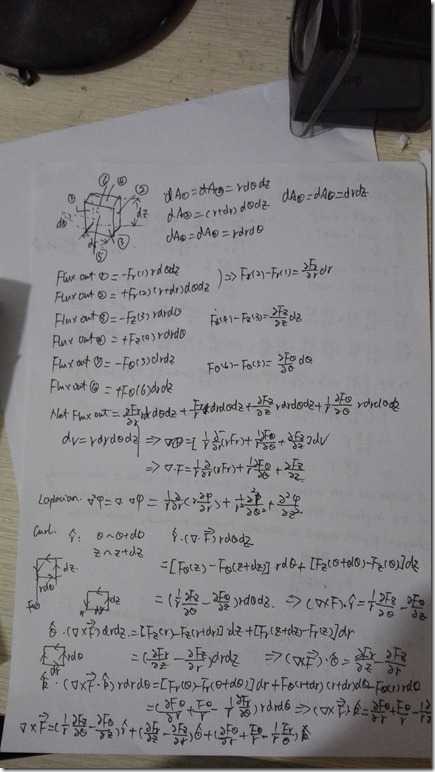 dA① = dA② = r dθ dz   dA⑤ = dA⑥ = dr dz
dA② = (r+dr) dθ dz
dA③ = dA④ = r dr dθ
Flux out ① = -Fr(1) r dθ dz
Flux out ② = +Fr(2)(r+dr) dθ dz   ⇒ Fr(2)-Fr(1) = ∂Fr/∂r dr
Flux out ③ = -Fz(3) r dr dθ   Fz(4)-Fz(3) = ∂Fz/∂z dz
Flux out ④ = +Fz(4) r dr dθ
Flux out ⑤ = -Fθ(5) dr dz   Fθ(6)-Fθ(5) = ∂Fθ/∂θ dθ
Flux out ⑥ = +Fθ(6) dr dz
Net Flux out = ∂Fr/∂r r dr dθ dz + Fr dr dθ dz + ∂Fz/∂z r dr dθ dz + 1/r ∂Fθ/∂θ r dr dθ dz
dV = r dr dθ dz ⇒ = [1/r ∂/∂r (rFr) + 1/r ∂Fθ/∂θ + ∂Fz/∂z] dV
⇒ ∇·F = 1/r ∂/∂r (rFr) + 1/r ∂Fθ/∂θ + ∂Fz/∂z
Laplacian. ∇²φ = ∇·∇φ = 1/r ∂/∂r (r ∂φ/∂r) + 1/r² ∂²φ/∂θ² + ∂²φ/∂z²
Curl. r̂: θ ~ θ+dθ   r̂·(∇×F⃗) r dθ dz
z ~ z+dz
dz   = [Fθ(z) - Fθ(z+dz)] r dθ + [Fz(θ+dθ) - Fz(θ)] dz
rdθ
dz   = (1/r ∂Fz/∂θ - ∂Fθ/∂z) r dθ dz ⇒ (∇×F)·r̂ = 1/r ∂Fz/∂θ - ∂Fθ/∂z
θ̂·(∇×F⃗) dr dz = [Fz(r) - Fz(r+dr)] dz + [Fr(z+dz) - Fr(z)] dr
rdθ   = (∂Fr/∂z - ∂Fz/∂r) dr dz ⇒ (∇×F)·θ̂ = ∂Fr/∂z - ∂Fz/∂r
dr
k̂·(∇×F⃗·k̂) r dr dθ = [Fr(θ) - Fr(θ+dθ)] dr + Fθ(r+dr)(r+dr) dθ - Fθ(r) r dθ
= (∂Fθ/∂r + Fθ/r - 1/r ∂Fr/∂θ) r dr dθ ⇒ (∇×F)·k̂ = ∂Fθ/∂r + Fθ/r - 1/r
∇×F⃗ = (1/r ∂Fz/∂θ - ∂Fθ/∂z) r̂ + (∂Fr/∂z - ∂Fz/∂r) θ̂ + (∂Fθ/∂r + Fθ/r - 1/r ∂Fr/∂θ) k̂